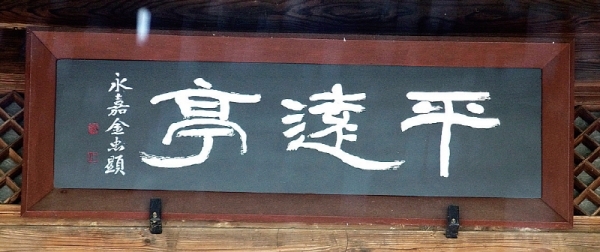 平遠亭
永嘉金忠顯